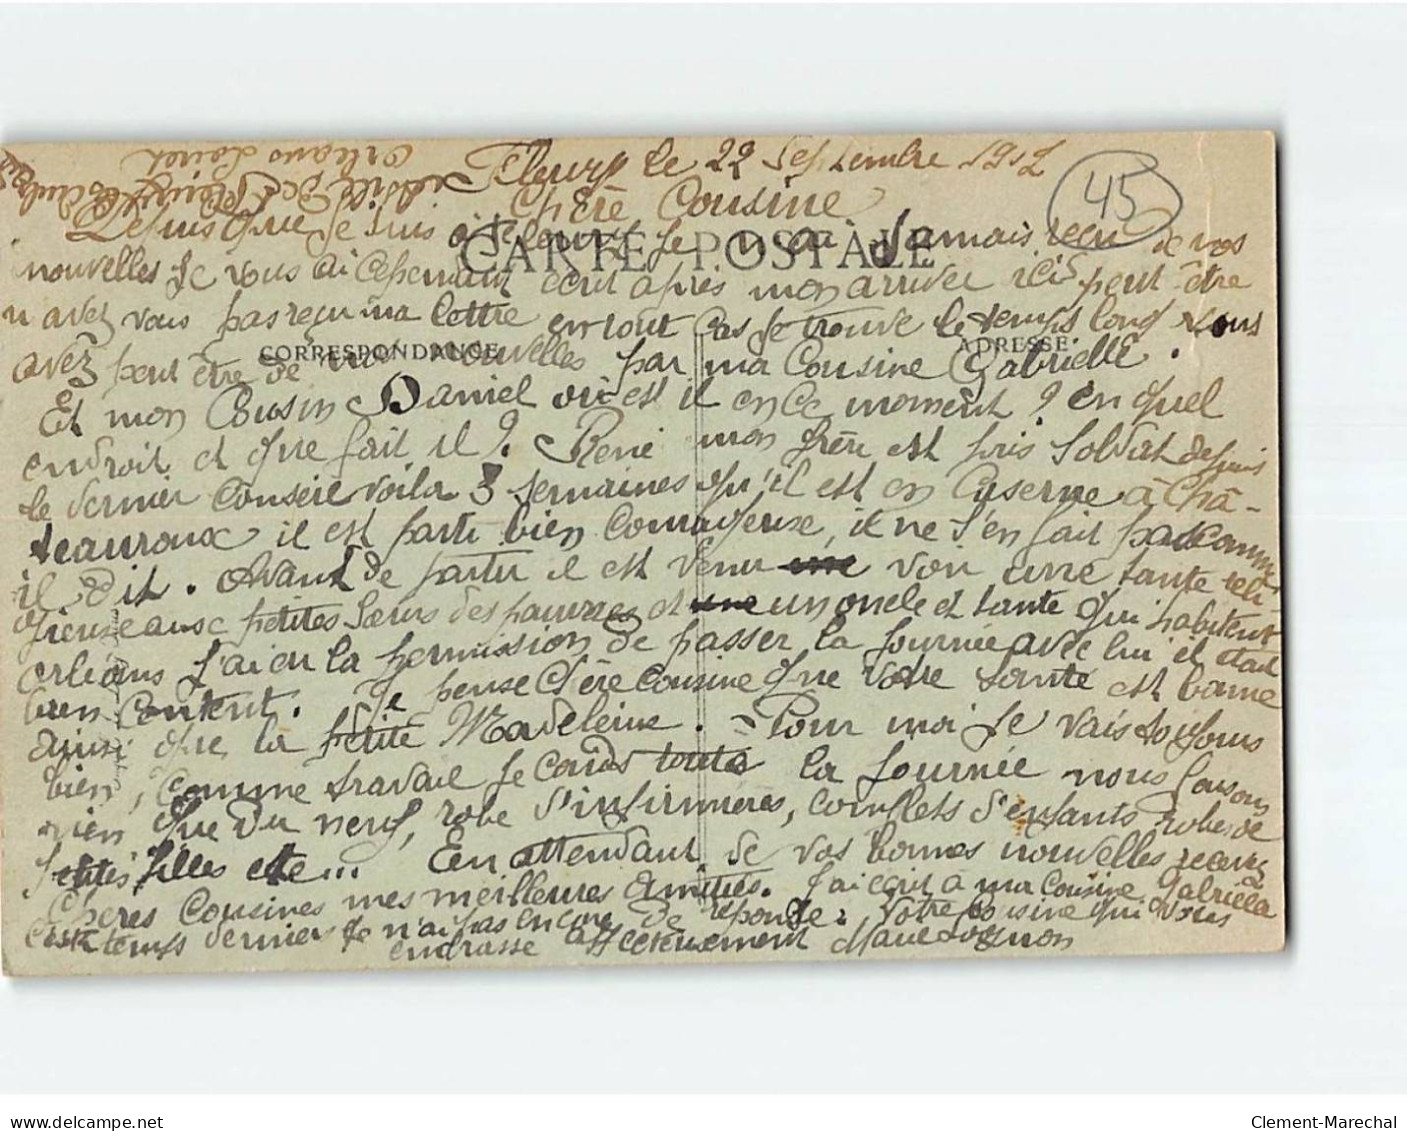 Fleury le 22 Septembre 1917
45
Chère Cousine
CARTE POSTALE
Depuis que je suis à Fleury je n'ai jamais reçu de vos
nouvelles je vous ai cependant écrit après mon arrivée ici peut-être
n'avez vous pas reçu ma lettre en tout cas je trouve le temps long vous
CORRESPONDANCE
ADRESSE
avez peut être de nouvelles par ma Cousine Gabrielle.
Et mon Cousin Daniel où est il en ce moment ? en quel
endroit et que fait il ? René mon frère est pris soldat depuis
le dernier conseil voila 3 semaines qu'il est en Caserne à Châ-
teauroux il est parti bien courageuse, il ne s'en fait pas comme
il dit. Avant de partir il est venu voir une tante reli-
gieuse aux petites Sœurs des pauvres et un oncle et tante qui habitent
Orléans j'ai eu la permission de passer la journée avec lui il était
bien content. Je pense chère cousine que votre santé est bonne
ainsi que la petite Madeleine. - Pour moi je vais toujours
bien, comme travail je couds toute la journée nous faisons
rien que du neuf, robe d'infirmières, complets d'enfants robes de
petites filles etc... En attendant de vos bonnes nouvelles recevez
Chères Cousines mes meilleures amitiés. J'ai écrit à ma cousine Gabriella
ces temps dernier je n'ai pas encore de réponse. Votre cousine qui vous
embrasse affectueusement Marie
Orléans Loiret